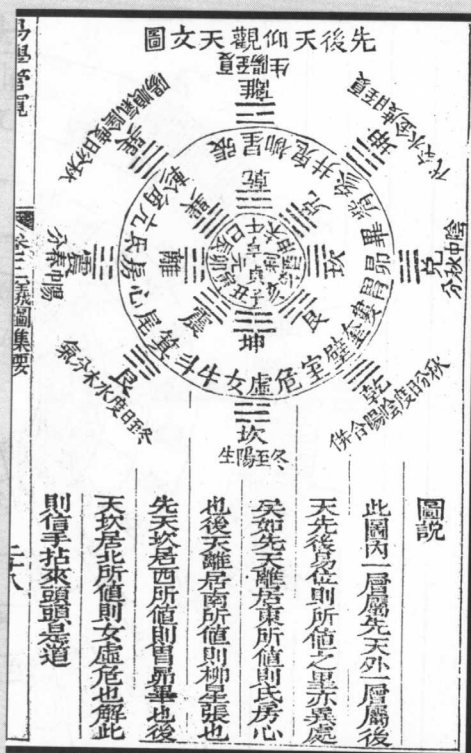 先後天仰觀天文圖
離
坤
兌
陰中秋分
乾
秋分日度陰陽合併
坎
冬至陽生
艮
冬至日度水木分氣
震
陽中春分
巽
張星柳鬼井參觜畢昴胃婁奎壁室危虛女牛斗箕尾心房氐亢角軫
乾
兌
坎
艮
坤
震
離
巽
圖說
此圖內一層屬先天外一層屬後
天先後易位則所值之星亦異處
矣如先天離居東所值則氐房心
也後天離居南所值則柳星張也
先天坎居西所值則胃昴畢也後
天坎居北所值則女虛危也解此
則信手拈來頭頭是道
易學管窺
圖集要
二十八